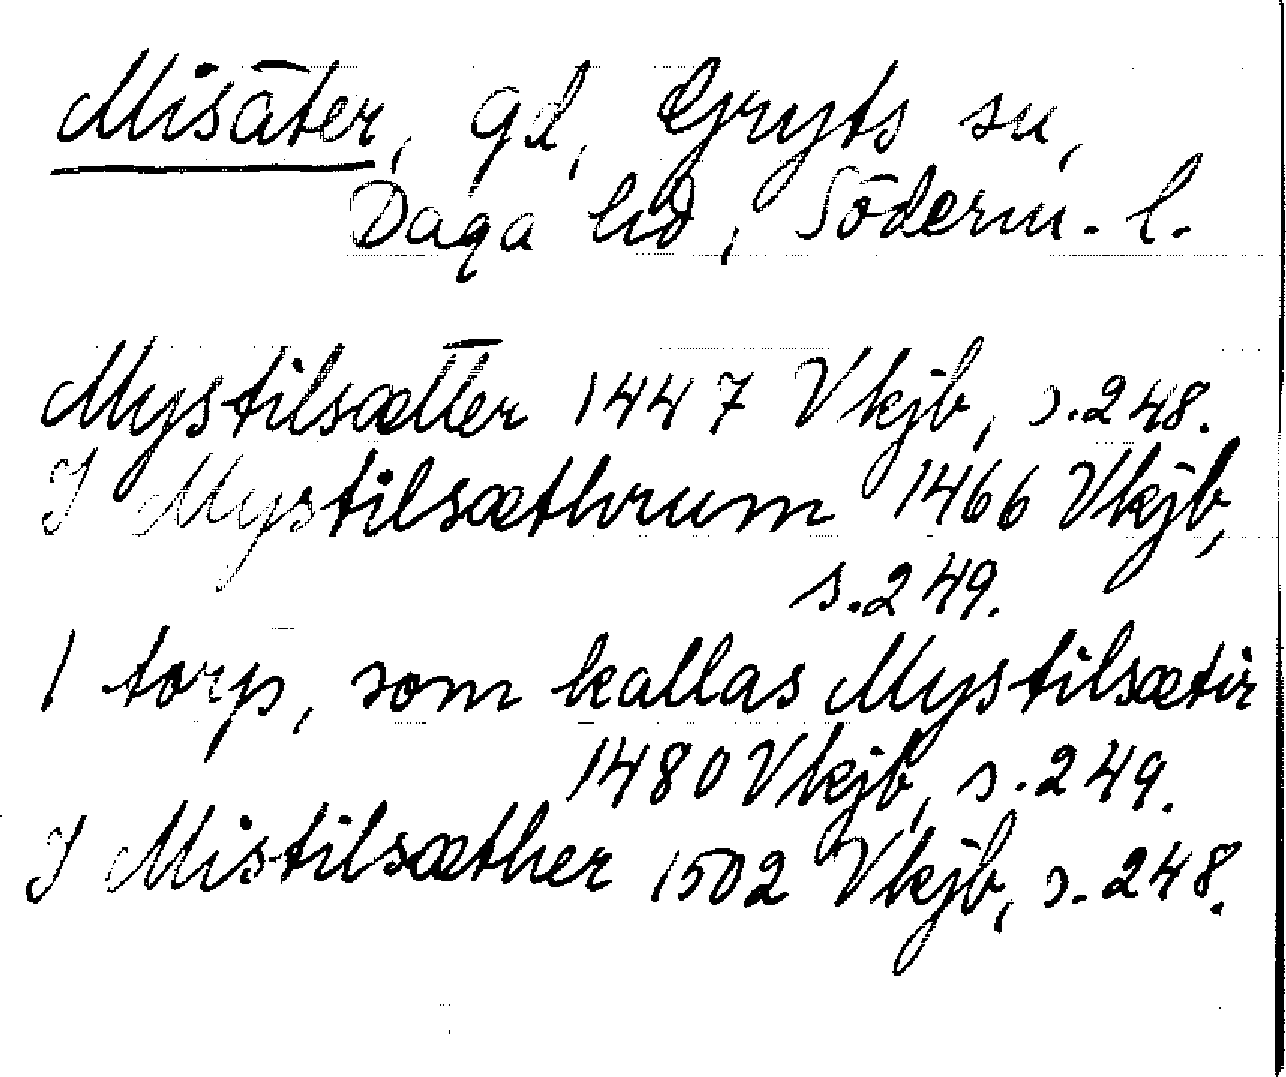 Misäter, gd, Gryts sn,
Daga hd, Söderm. l.
Mystilsætter 1447 Vkjb, s. 248.
I Mystilsæthrum 1466 Vkjb,
s. 249.
1 torp, som kallas Mystilsætir
1480 Vkjb, s. 249.
I Mistilsæther 1502 Vkjb, s. 248.